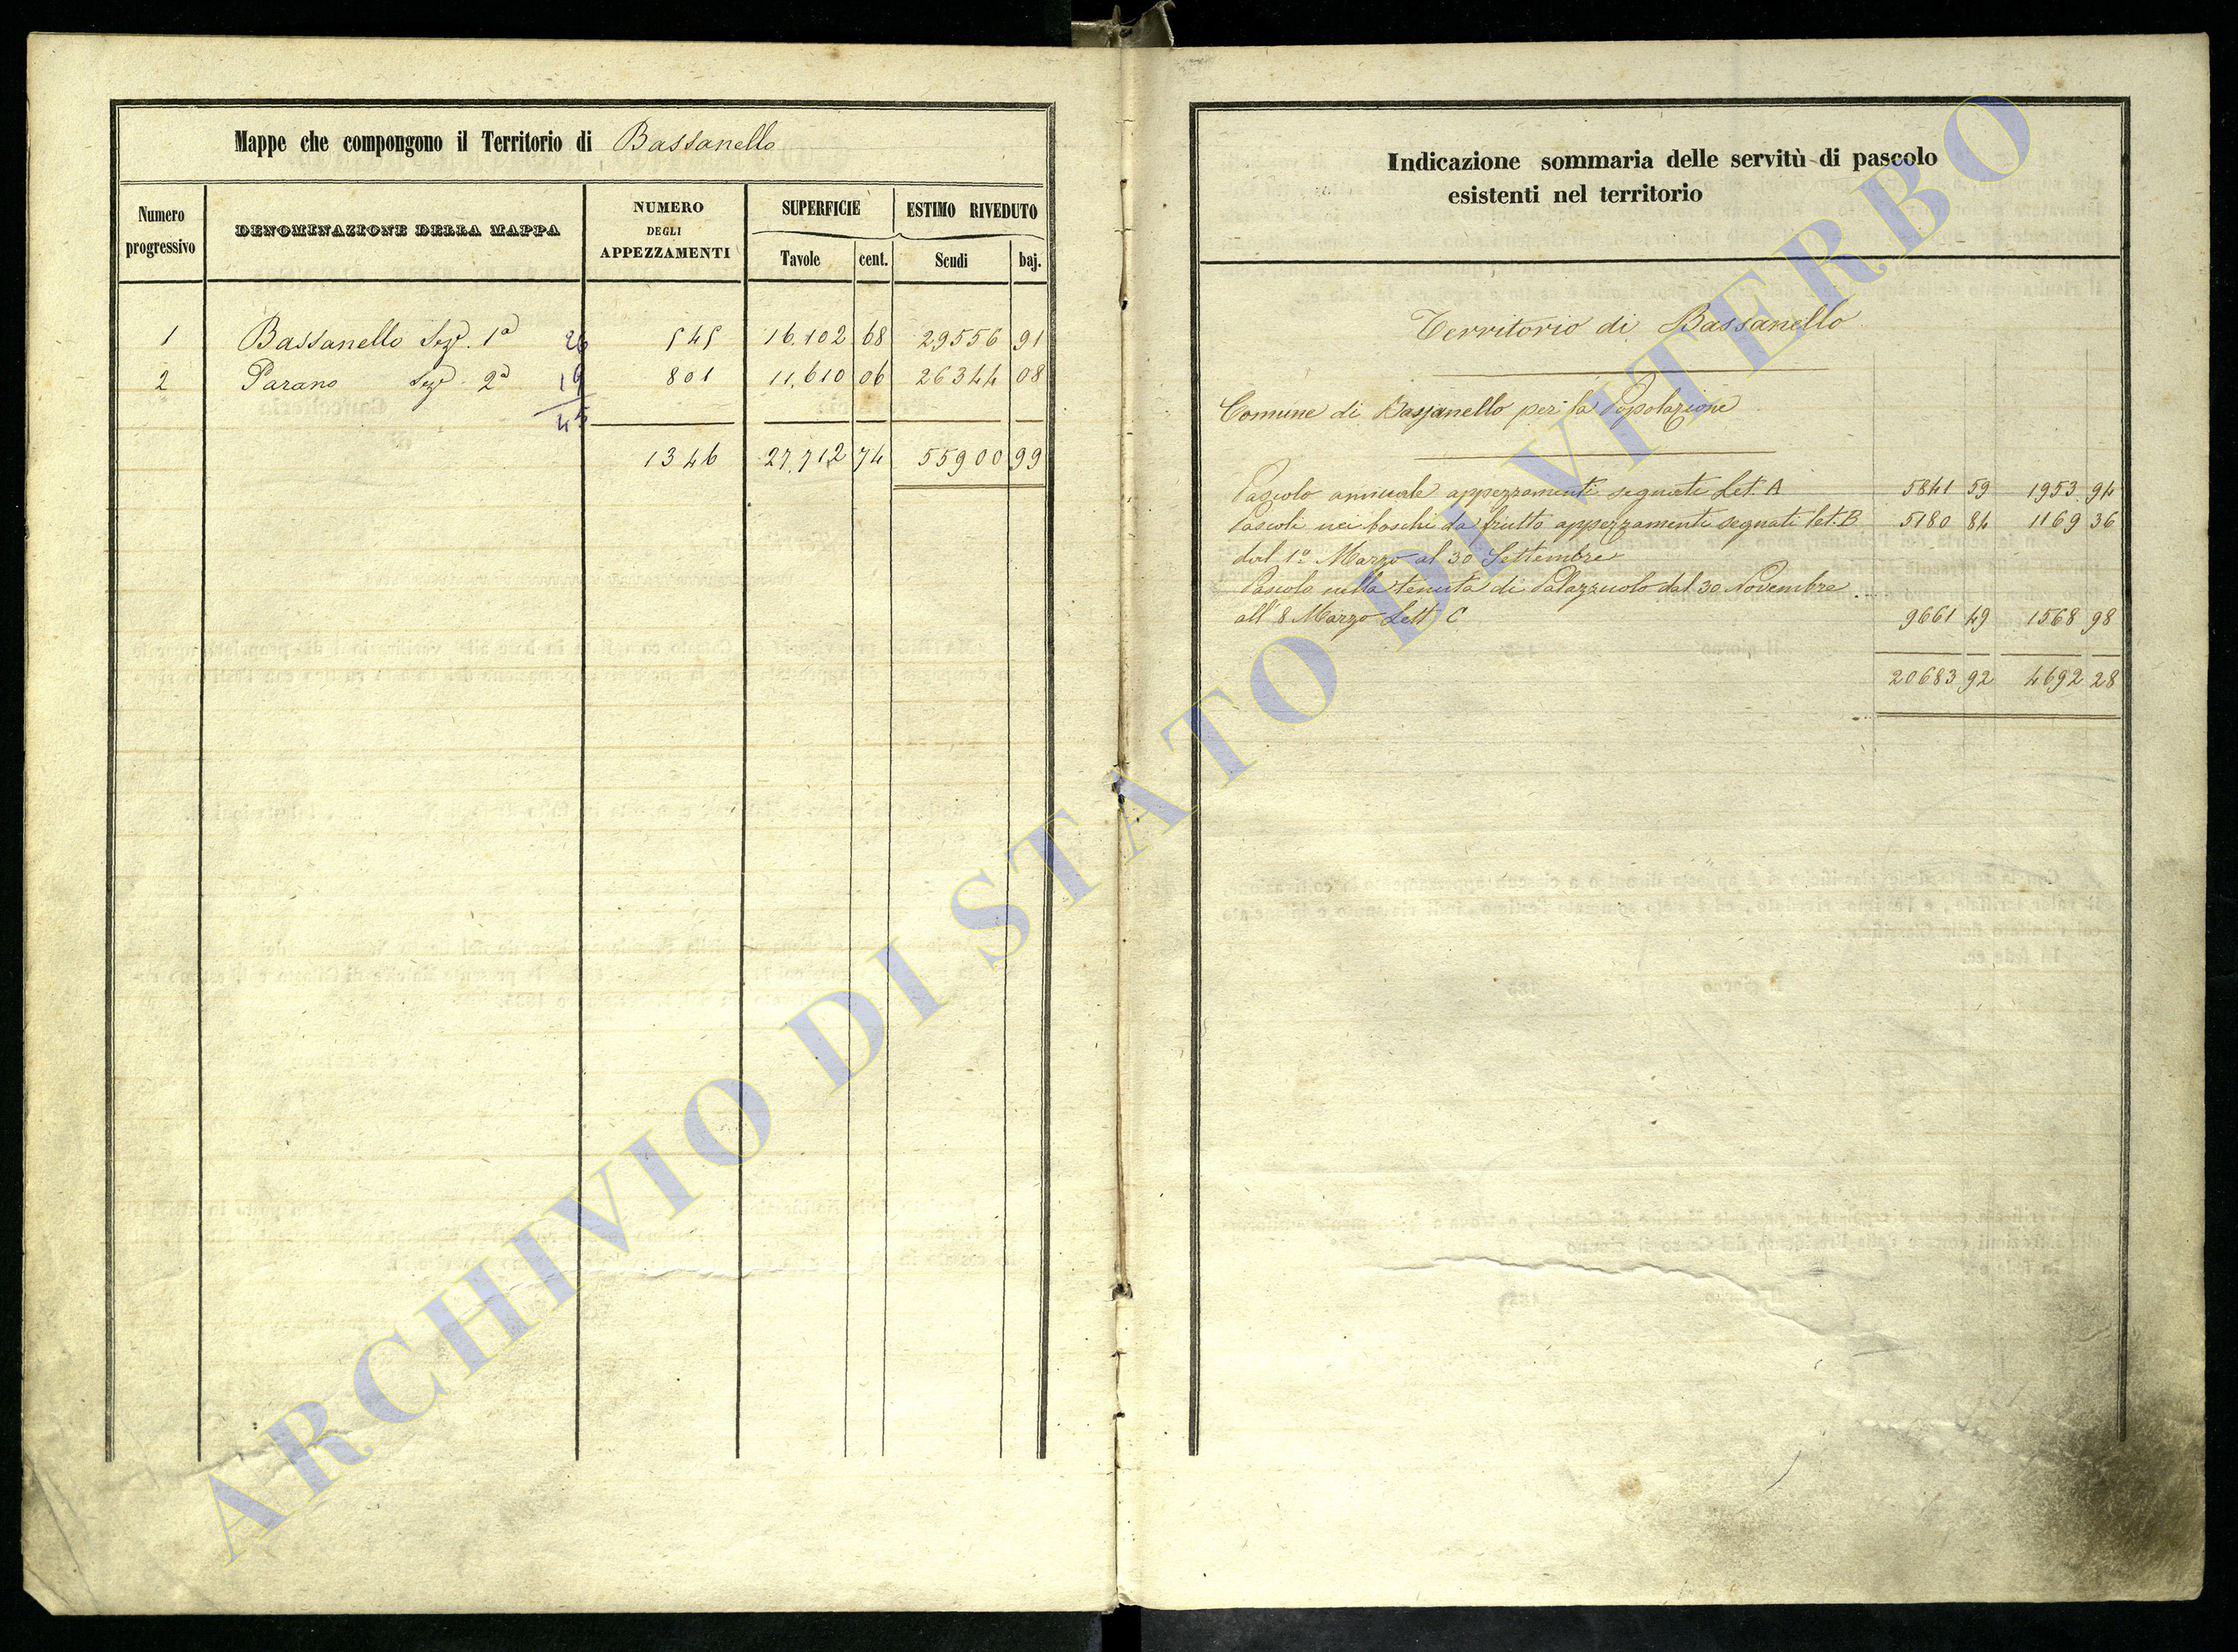 Mappe che compongono il Territorio di Bassanello
Numero progressivo
DENOMINAZIONE DELLA MAPPA
NUMERO DEGLI APPEZZAMENTI
SUPERFICIE
Tavole cent.
ESTIMO RIVEDUTO
Scudi baj.
1 Bassanello Sez.e 1a 26 545 16.102 68 29556 91
2 Parano Sez.e 2a 19 801 11.610 06 26344 08
45
1346 27.712 74 55900 99
Indicazione sommaria delle servitù di pascolo
esistenti nel territorio
Territorio di Bassanello
Comune di Bassanello per la Popolazione
Pascolo annuale appezzamenti segnati Let. A 5841 59 1953 94
Pascoli nei boschi da frutto appezzamenti segnati let. B 5180 84 1169 36
dal 1o Marzo al 30 Settembre
Pascolo nella tenuta di Palazzuolo dal 30 Novembre
all' 8 Marzo Lett C 9661 49 1568 98
20683 92 4692 28
ARCHIVIO DI STATO DI VITERBO